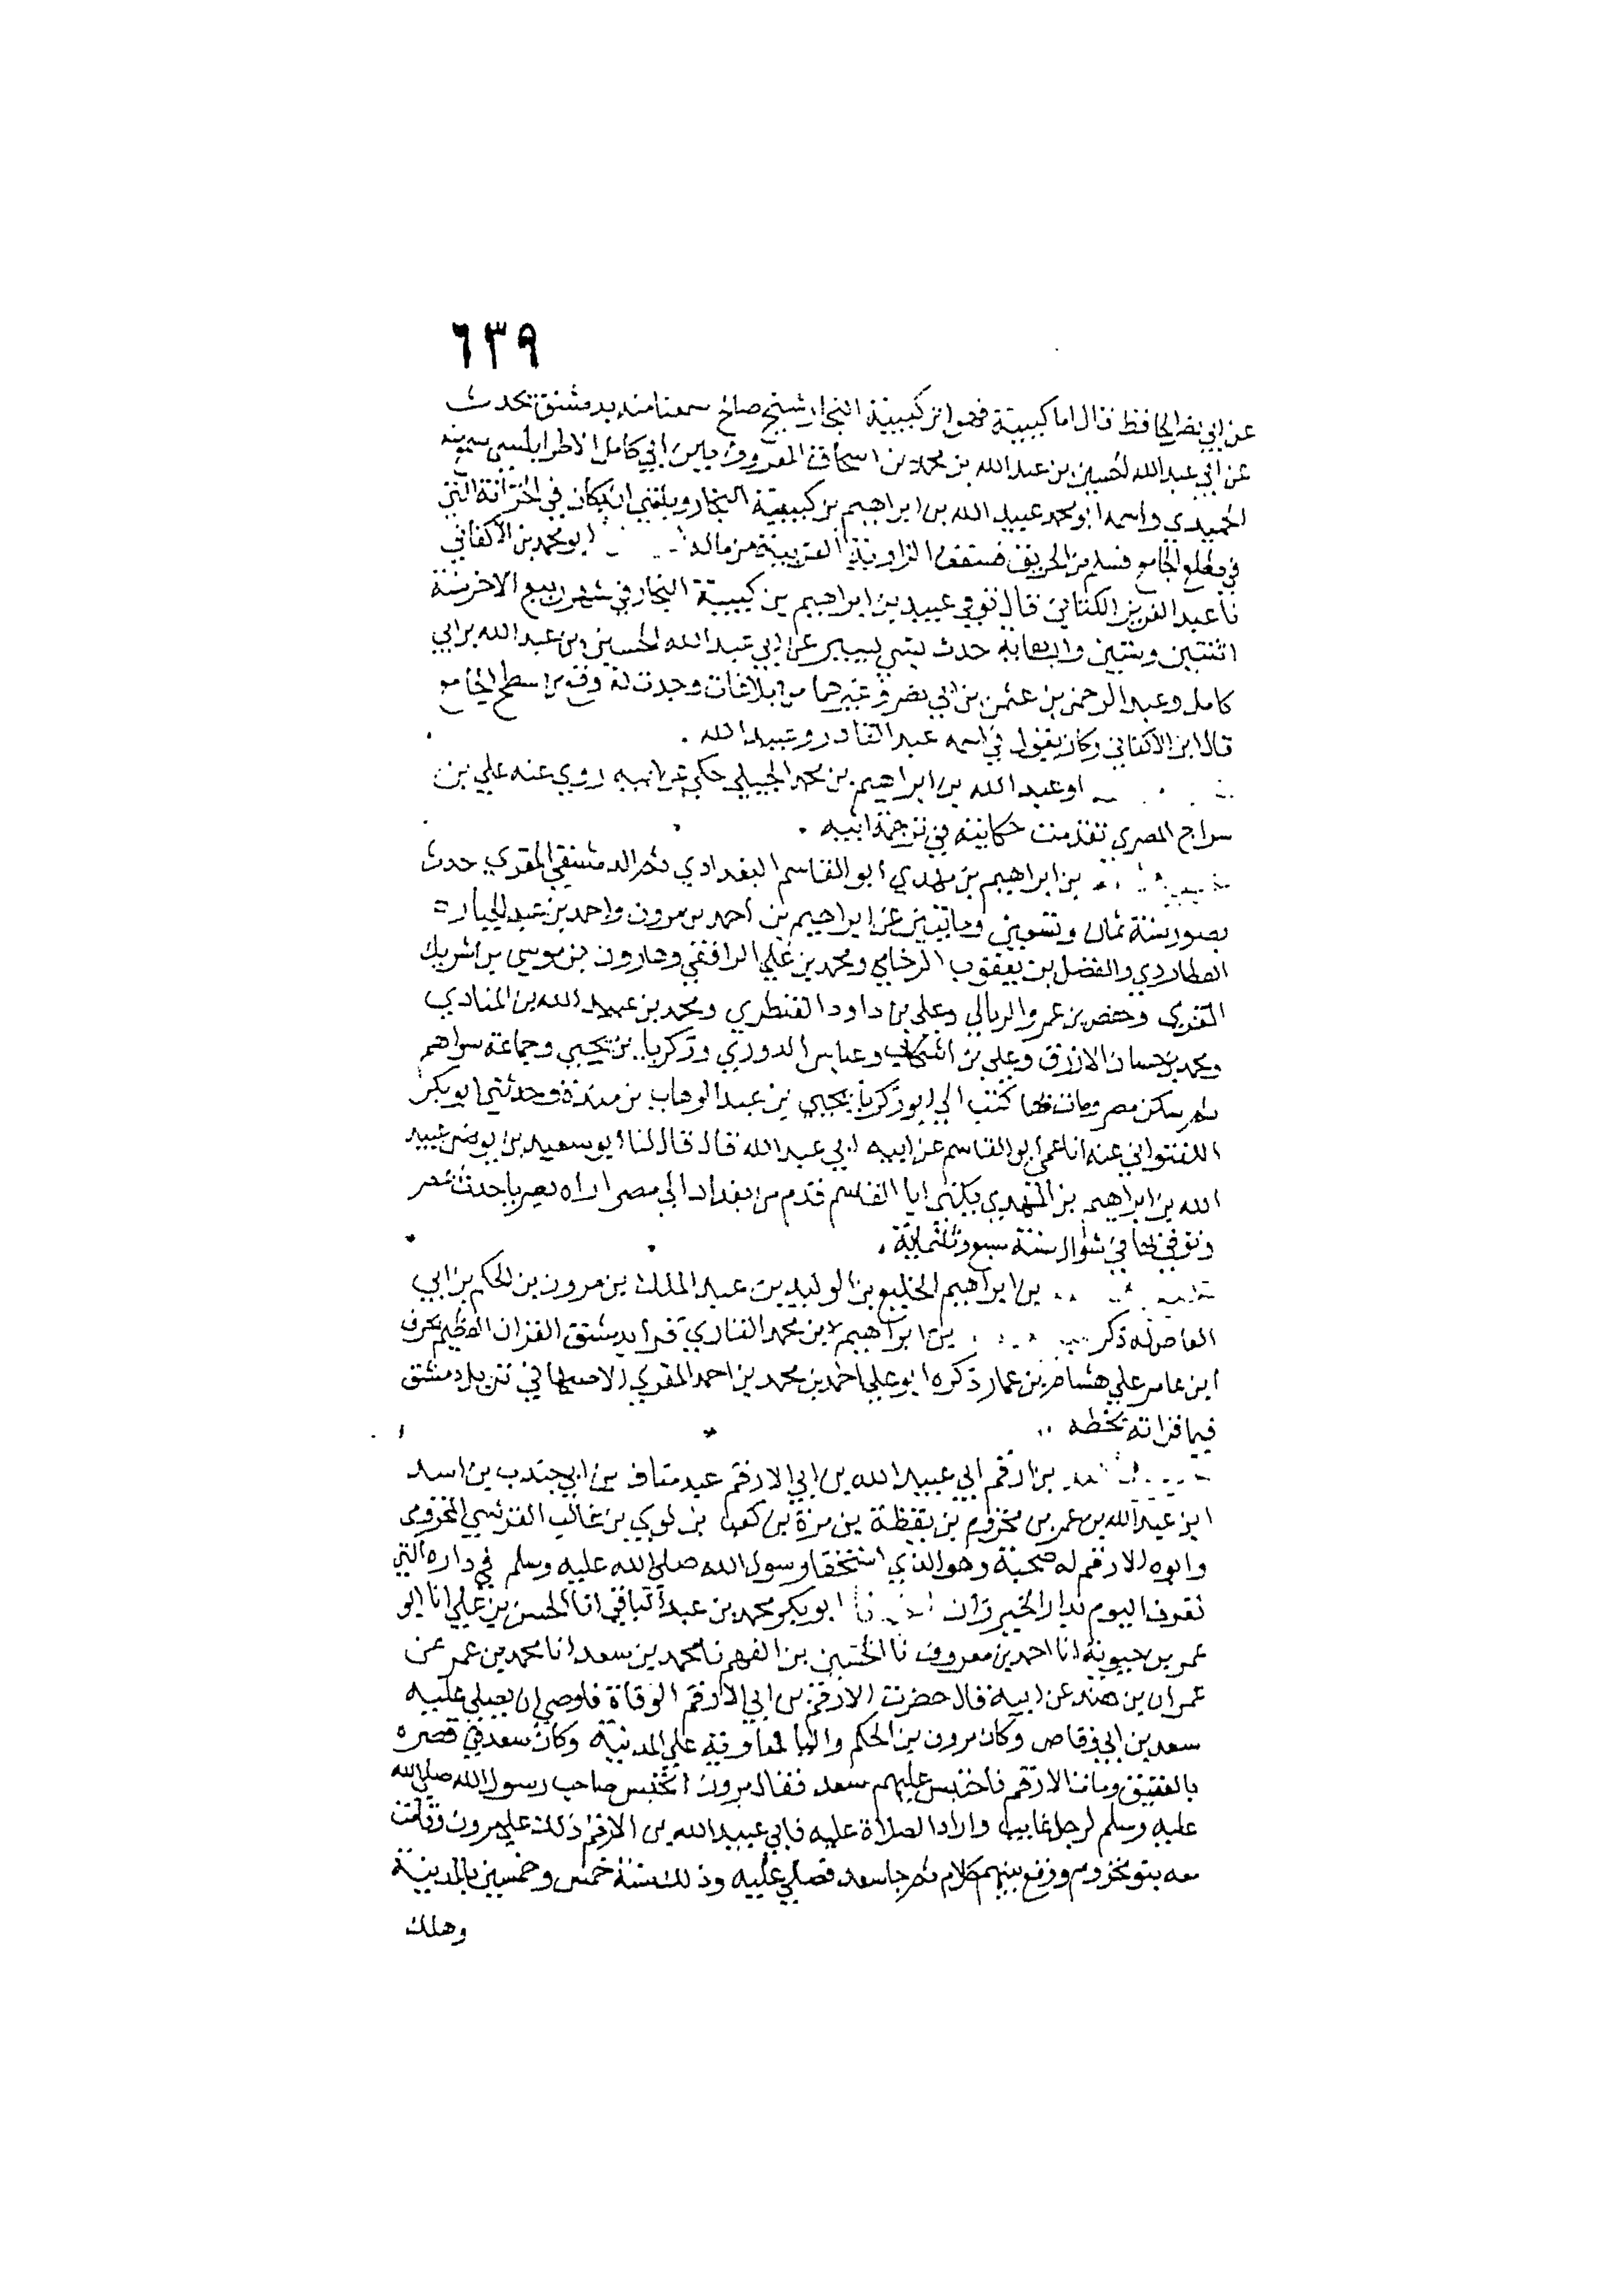 ٦٣٩
عن ابي نصر الحافظ قال اما كبيبة فهو ابن كبيبة النجار شيخ صالح سمعنا منه بدمشق تحدث
عن ابي عبد الله الحسين بن عبد الله بن محمد بن اسحاق المعروف بابن ابي كامل الاطرابلسي سمع منه
الحميدي واسمه ابو محمد عبيد الله بن ابراهيم بن كبيبة النجار وبلغني انه كان في الخزانة التي
في الجامع فسلم من الحريق فسقف الزاوية الغربية من ماله ابو محمد بن الاكفاني
نا عبد العزيز الكتاني قال توفي عبيد بن ابراهيم بن كبيبة النجار في شهر ربيع الاخر سنة
اثنتين وستين واربعماية حدث بشي يسير عن ابي عبد الله الحسين بن عبد الله بن ابي
كامل وعبد الرحمن بن عثمن بن ابي نصر وغيرهما من سطح الجامع
قال ابن الاكفاني وكان يقول في اسمه عبد القادر وعبيد الله .
او عبد الله بن ابراهيم بن محمد الجبيلي حكي عن ابيه روي عنه علي بن
سراج المصري تقدمت حكايته في ترجمة ابيه .
بن ابراهيم بن مهدي ابو القاسم البغدادي ثم الدمشقي المقري حدث
بصور سنة ثمان وتسعين وماتيين عن ابراهيم بن احمد بن مرون واحمد بن عبد الجبار
العطاردي والفضل بن يعقوب الرخامي ومحمد بن علي الرافقي وهارون بن موسي بن شريك
المقري وحفص بن عمرو الربالي وعلي بن داود القنطري ومحمد بن عبيد الله بن المنادي
ومحمد بن حسان الازرق وعلي بن اشكاب وعباس الدوري وزكريا بن يحيي وجماعة سواهم
ثم سكن مصر ومات بها كتب الي ابو زكريا يحيي بن عبد الوهاب بن مندة وحدثني ابو بكر
اللفتواني عنه انا عمي ابو القاسم عن ابيه ابي عبد الله قال قال لنا ابو سعيد بن يونس عبيد
الله بن ابراهيم بن المهدي يكنى ابا القاسم قدم من بغداد الي مصر اراه بصريا حدث بمصر
وتوفي بها في شوال سنة سبع وثلثماية .
بن ابراهيم الخليع بن الوليد بن عبد الملك بن مرون بن الحكم بن ابي
العاص له ذكر بن ابراهيم بن محمد القاري قرا بدمشق القران العظيم بحرف
ابن عامر علي هشام بن عمار ذكره ابو علي احمد بن محمد بن احمد المقري الاصبهاني نزيل دمشق
فيما قراته بخطه ..
بن ارقم ابي عبيد الله بن ابي الارقم عبد مناف بن ابي جندب بن اسد
ابن عبد الله بن عمر بن مخزوم بن يقظة بن مرة بن كعب بن لوي بن غالب القرشي المخزومي
وابوه الارقم له صحبة وهو الذي استخفا رسول الله صلى الله عليه وسلم في داره التي
تعرف اليوم بدار الخيزران ابو بكر محمد بن عبد الباقي انا الحسن بن علي انا ابو
عمر بن حيوية انا احمد بن معروف نا الحسين بن الفهم نا محمد بن سعد انا محمد بن عمر عن
عمران بن هند عن ابيه قال حضرت الارقم بن ابي الارقم الوفاة فاوصي ان يصلي عليه
سعد بن ابي وقاص وكان مرون بن الحكم واليا لمعاوية علي المدينة وكان سعد في قصره
بالعقيق ومات الارقم فاحتبس عليهم سعد فقال مرون ايحبس صاحب رسول الله صلى الله
عليه وسلم لرجل غايب واراد الصلاة عليه فابي عبيد الله بن الارقم ذلك علي مرون وقامت
معه بنو مخزوم ووقع بينهم كلام ثم جا سعد فصلي عليه وذلك سنة خمس وخمسين بالمدينة
وهلك